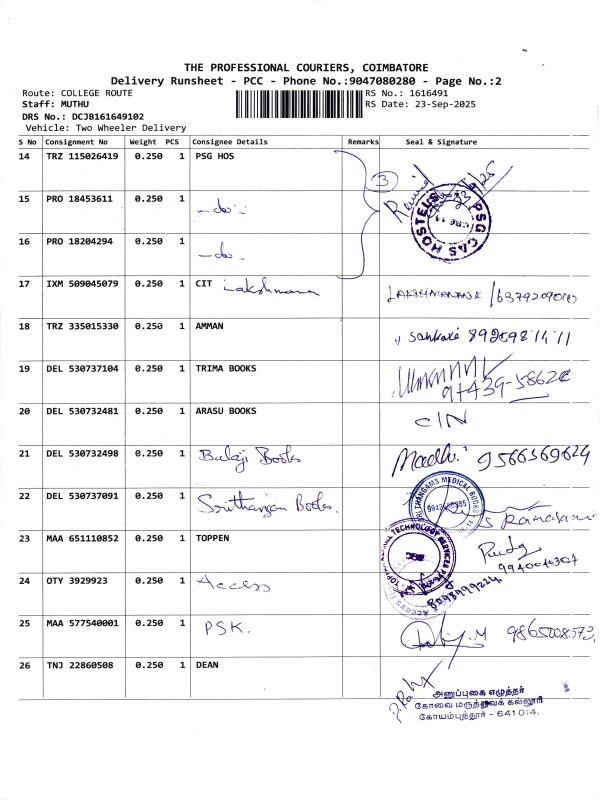 THE PROFESSIONAL COURIERS, COIMBATORE
Delivery Runsheet - PCC - Phone No.:9047080280 - Page No.:2
Route: COLLEGE ROUTE RS No.: 1616491
Staff: MUTHU RS Date: 23-Sep-2025
DRS No.: DCJB161649102
Vehicle: Two Wheeler Delivery
S No Consignment No Weight PCS Consignee Details Remarks Seal & Signature
14 TRZ 115026419 0.250 1 PSG HOS 3
PSG CAS HOSTELS
15 PRO 18453611 0.250 1 -do-
16 PRO 18204294 0.250 1 -do-
17 IXM 509045079 0.250 1 CIT Lakshmana
18 TRZ 335015330 0.250 1 AMMAN
19 DEL 530737104 0.250 1 TRIMA BOOKS
20 DEL 530732481 0.250 1 ARASU BOOKS
21 DEL 530732498 0.250 1 Balaji Books Madhu. 9566369624
22 DEL 530737091 0.250 1 Srithangam Books.
23 MAA 651110852 0.250 1 TOPPEN
24 OTY 3929923 0.250 1 Access
25 MAA 577540001 0.250 1 PSK.
26 TNJ 22860508 0.250 1 DEAN
அனுப்புகை எழுத்தர்
கோவை மருத்துவக் கல்லூரி
கோயம்புத்தூர் - 641 014.